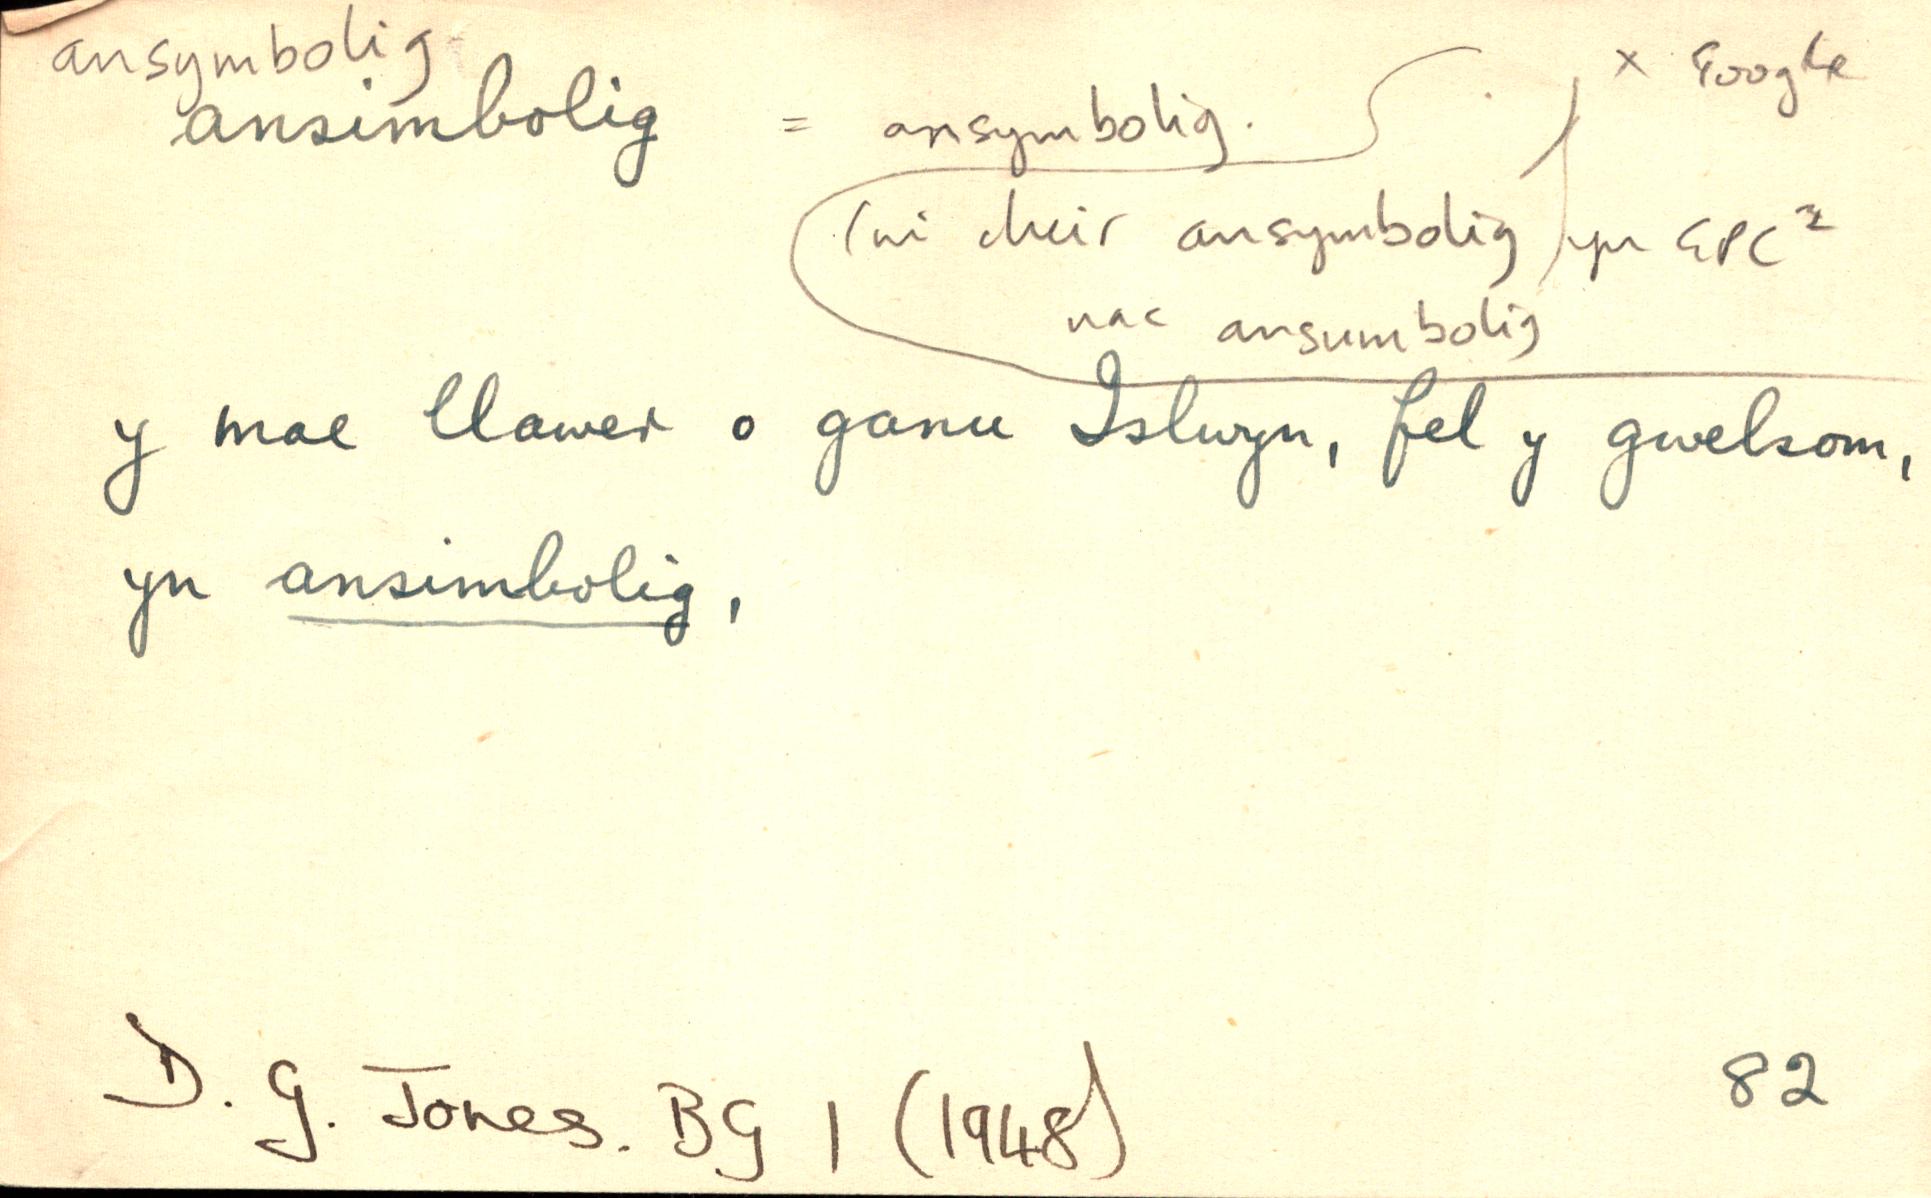 ansymbolig
ansimbolig = ansymbolig. x Google
(ni cheir ansymbolig) yn GPC²
nac ansumbolig
y mae llawer o ganu Islwyn, fel y gwelsom,
yn ansimbolig,
D. G. Jones. BG 1 (1948) 82